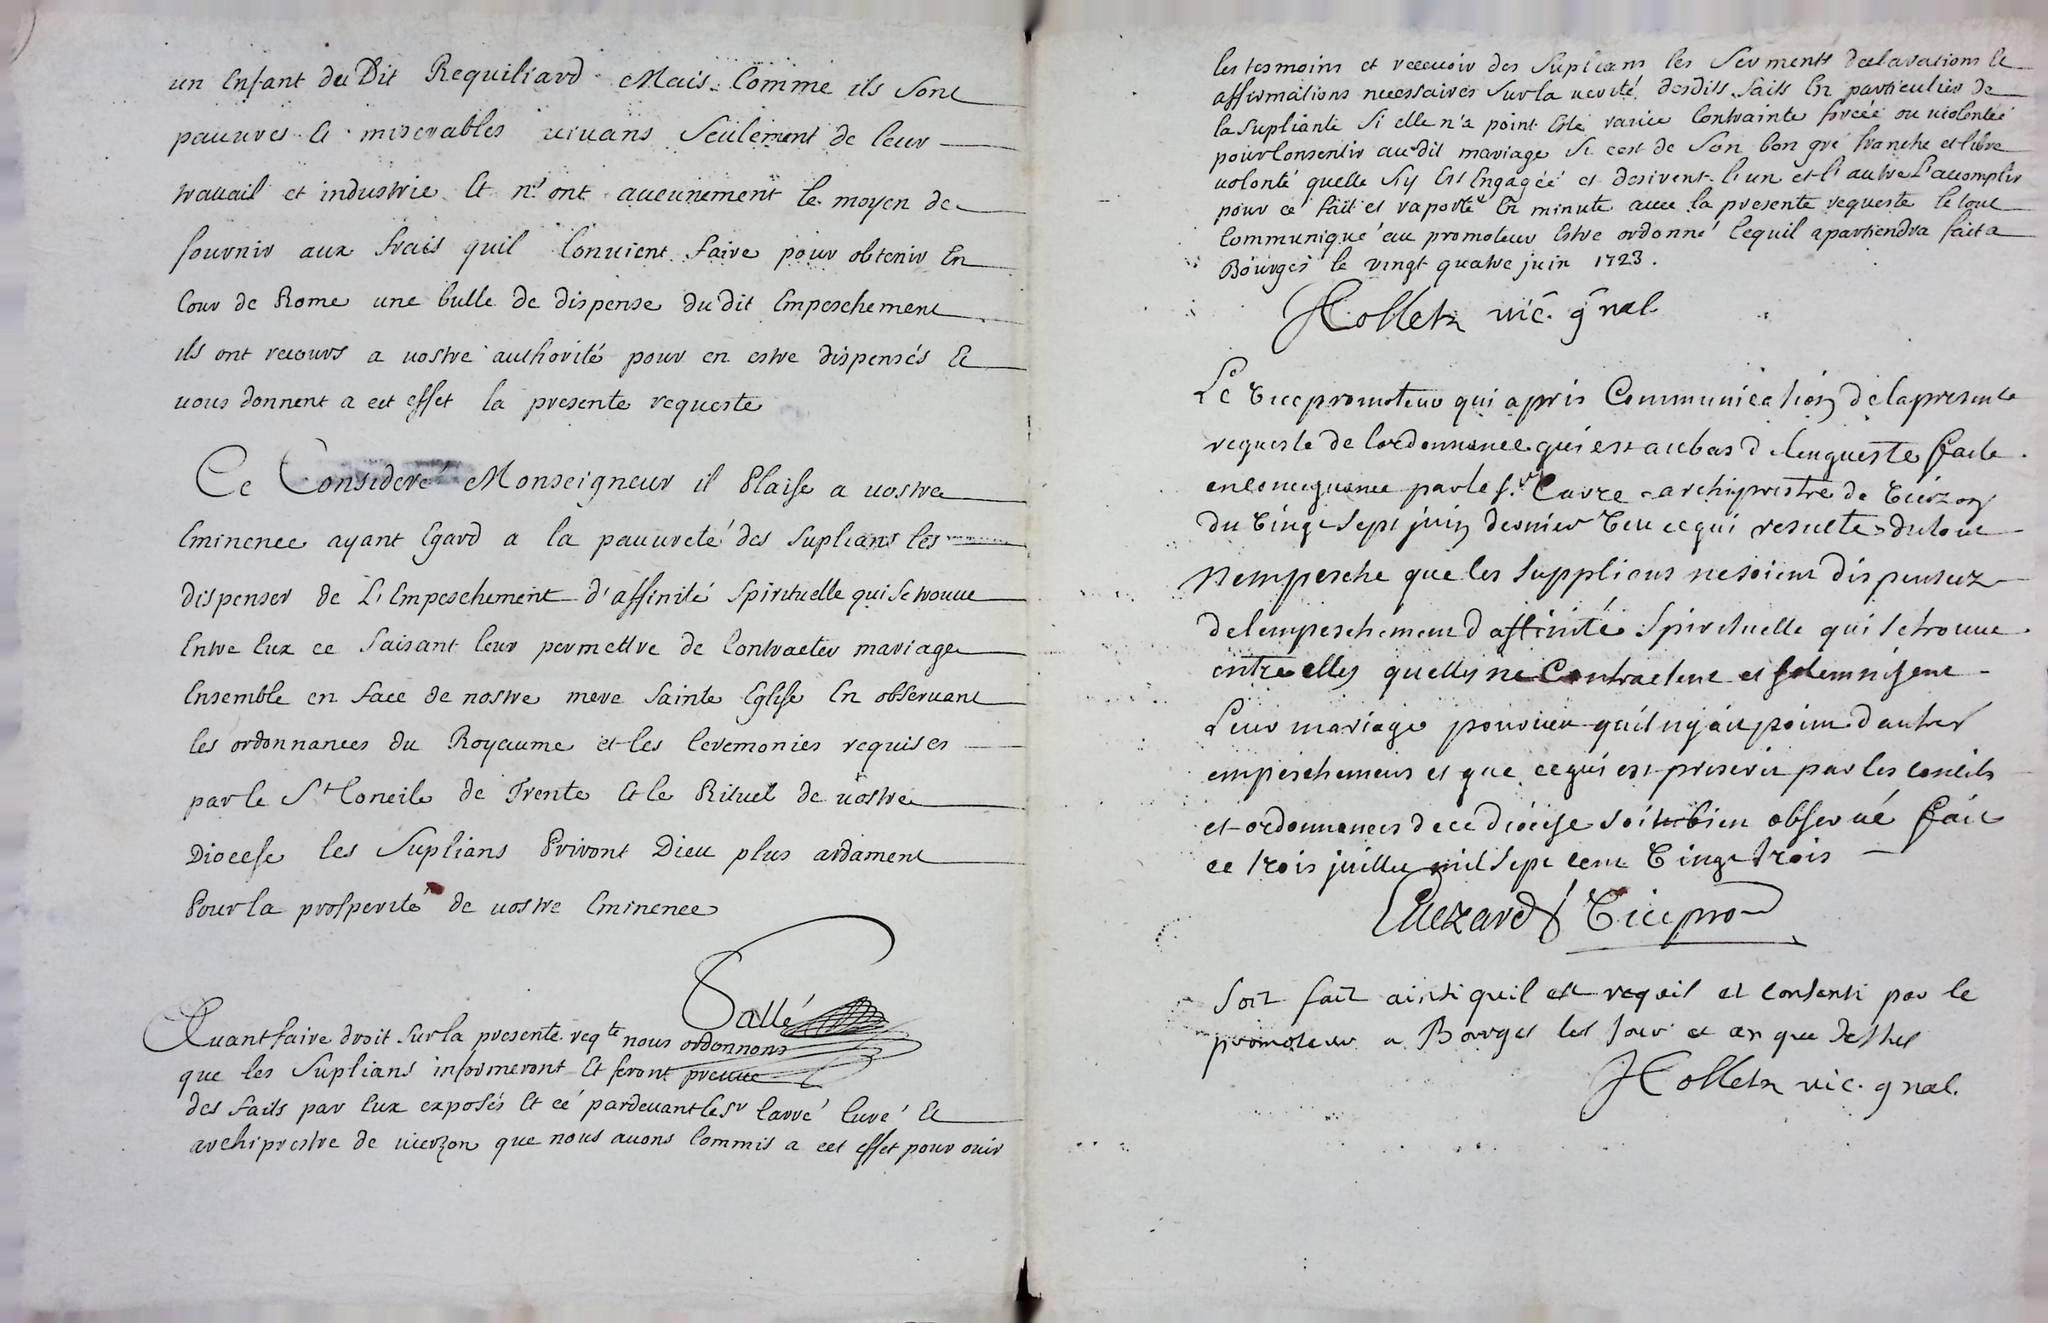 un Enfant du Dit Requiliard Mais Comme ils sont
pauvres et miserables vivans seulement de leur
travail et industrie et n'ont aucunement le moyen de
fournir aux frais quil Convient faire pour obtenir En
Cour de Rome une bulle de dispense du dit Empeschement
ils ont recours a vostre authorité pour en estre dispensés Et
vous donnent a cet effet la presente requeste
Ce Consideré Monseigneur il Plaise a vostre
Eminence ayant Egard a la pauvreté des suplians les
dispenser de L'Empeschement d'affinité spirituelle qui se trouve
Entre Eux ce faisant leur permettre de Contracter mariage
Ensemble en face de nostre mere sainte Eglise En observant
les ordonnances du Royaume et les Ceremonies requises
par le St Concile de Trente Et le Rituel de vostre
Diocese les Suplians Priront Dieu plus ardament
Pour la prosperité de vostre Eminence
Sallé
Avant faire droit sur la presente reqte nous ordonnons
que les Suplians informeront Et feront preuve
des faits par Eux exposés Et ce pardevant le Sr Carré Curé Et
archiprestre de vierzon que nous avons Commis a cet effet pour ouir
les tesmoins et recevoir des Suplians les Serments declarations Et
affirmations necessaires Sur la verité desdits faits En particulier de
la Supliante Si elle n'a point Esté ravie Contrainte forcée ou violentée
pour Consentir audit mariage Si c'est de Son bon gré franche et libre
volonté quelle S'y Est Engagée et desirent l'un et l'autre L'accomplir
pour ce fait et raporté En minute avec la presente requeste le tout
Communiqué au promoteur Estre ordonné Cequil apartiendra fait a
Bourges le vingt quatre juin 1723.
Hollett vic. gnal
Le Vicepromoteur qui a pris Communication de la presente
requeste de l'ordonnance qui est au bas de l'enqueste faite
en consequence par le s.r Carré archiprestre de Vierzon
du Vingt Sept juin dernier Veu ce qui resulte du tout
N'empesche que les supplians ne soient dispensez
de l'empeschement d'affinité spirituelle qui se trouve
entre elles quelles ne Contractent et solemnisent
Leur mariage pourveu qu'il n'y ait point d'autres
empeschemens et que ce qui est prescrit par les conciles
et ordonnances de ce diocese soit bien observé fait
ce trois juillet mil sept cent Vingt trois
Vicepro
Soit fait ainsi quil est requis et consenti par le
promoteur a Bourges les jour et an que dessus
Hollett vic. gnal.